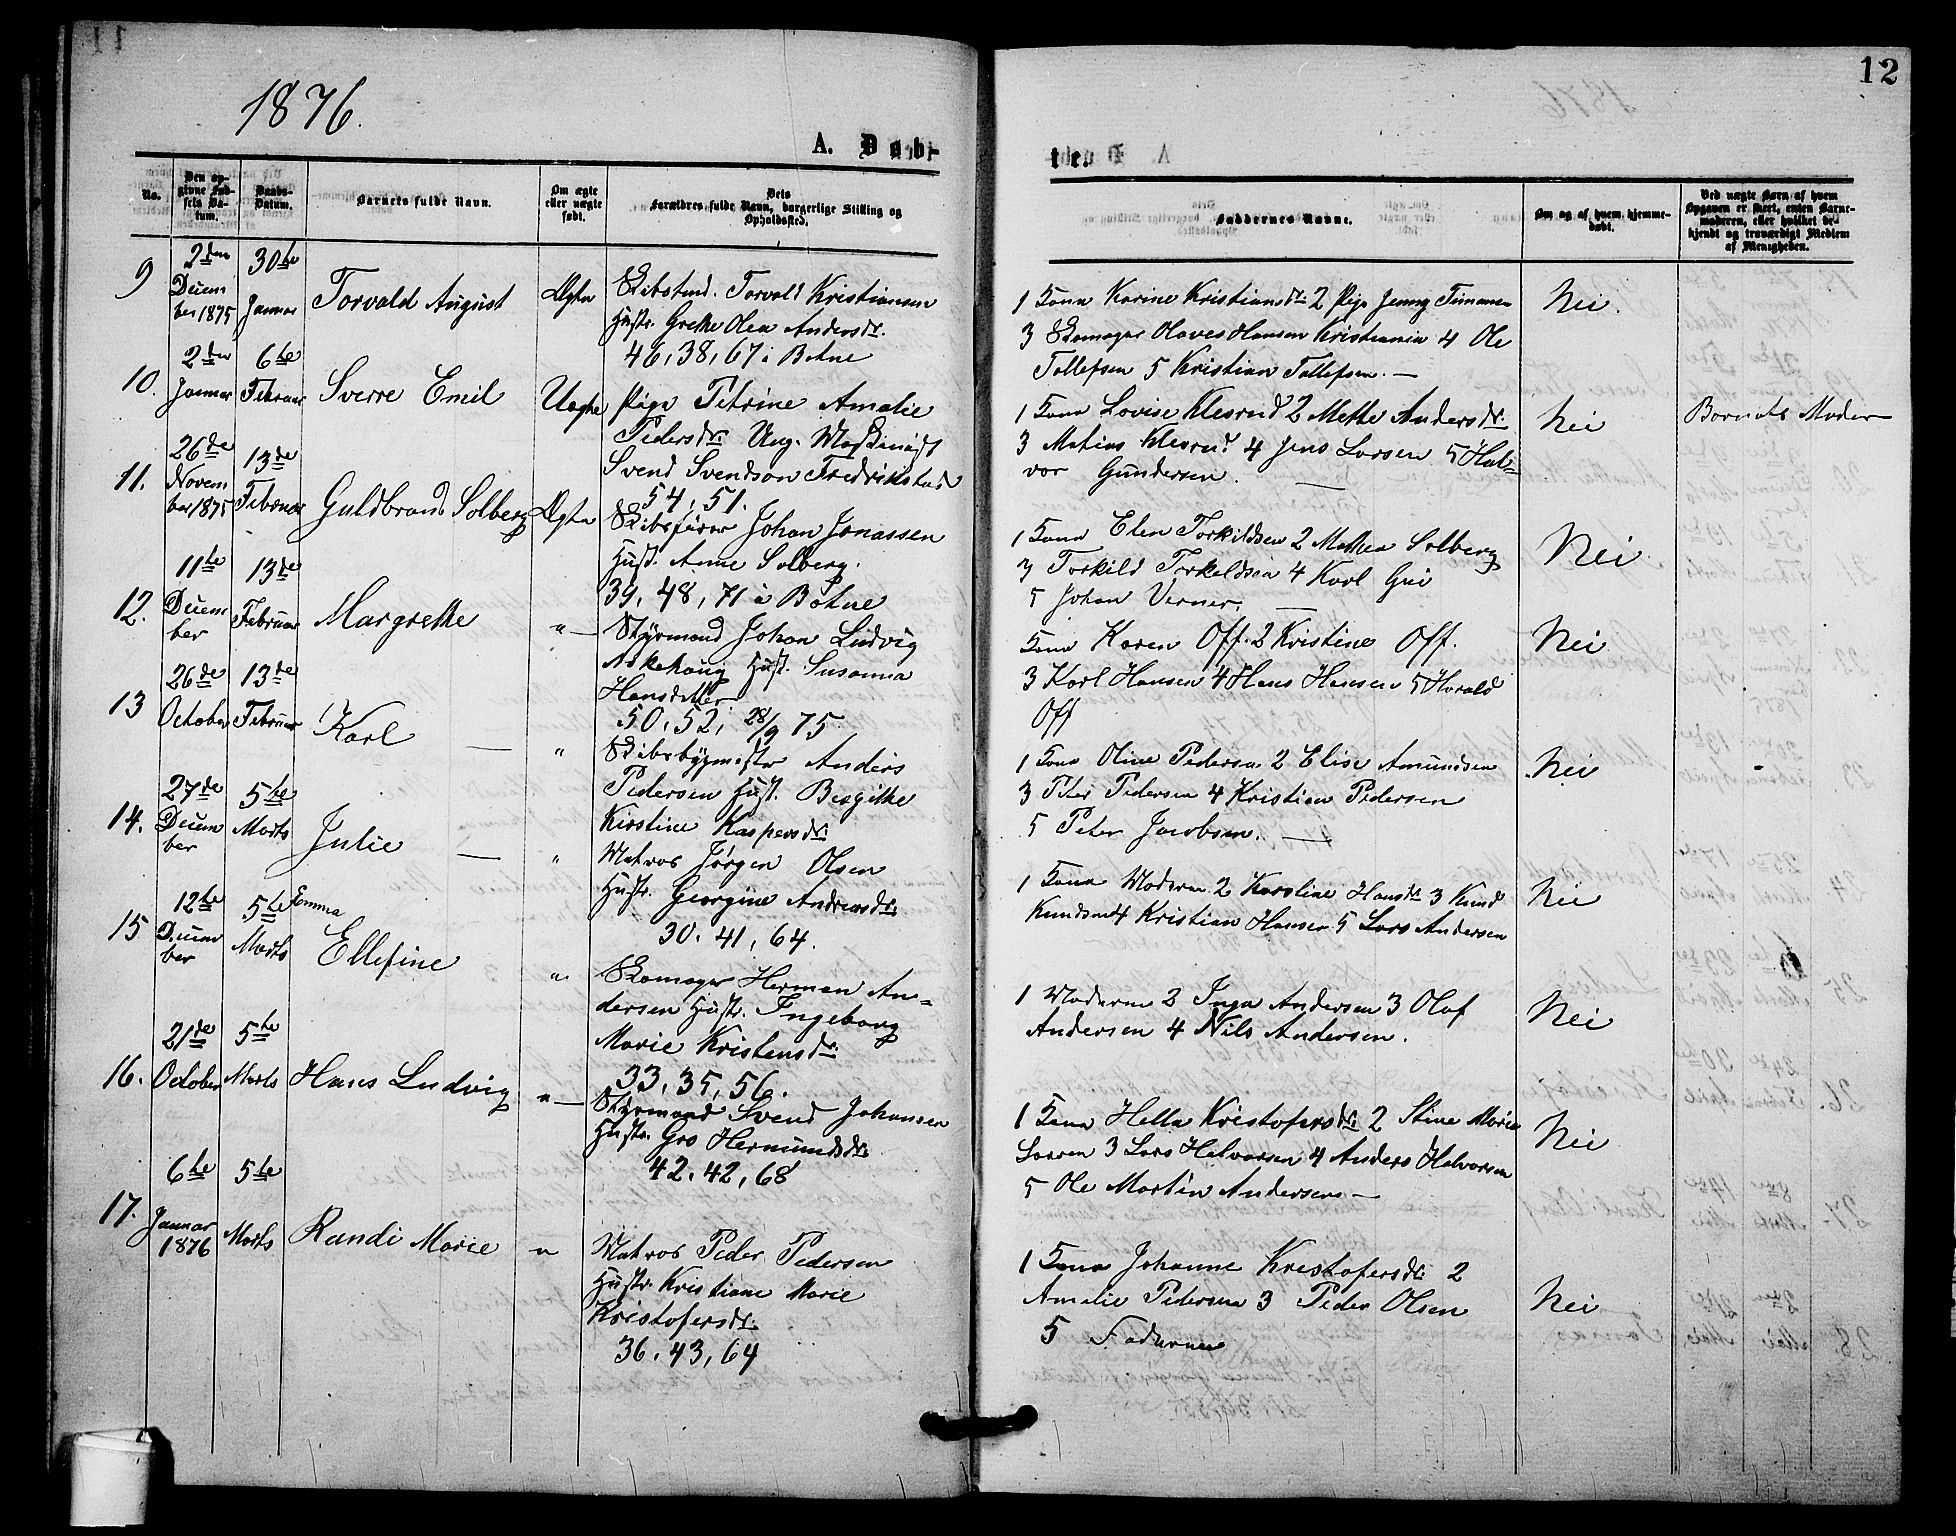 1876.
12
A. Døb-
te.
No.
Den op-
givne Fød-
sels Da-
tum.
Daabs-
Datum.
Barnets fulde Navn.
Om ægte
eller uægte
født.
Dets
Forældres fulde Navn, borgerlige Stilling og
Opholdssted.
Faddernes Navne.
Om og af hvem hjemme-
døbt.
Ved uægte Børn af hvem
Opgaven er skeet, enten Barne-
moderen, eller hvilket be-
kjendt og troværdigt Medlem
af Menigheden.
9
2den
Decem
ber 1875
30te
Januar
Torvald August
Ægte
Skibstmd. Torvald Kristiansen
Hustr. Grethe Olea Andersdr.
46, 38, 67 i Botne
1 Kona Karine Kristiansdr. 2 Pige Jenny
3 Skomager Olaves Hansen Kristiania 4 Ole
Tollefsen 5 Kristian Tollefsen. —
Nei.
10.
2den
Januar
6te
Februar
Sverre Emil
Uægte
Pige Petrine Amalie
Pedersdr. Ung. Maskinist
Svend Svendson Fredrikstad
54, 51.
1 Kona Lovise Klesrud 2 Methe Andersdr.
3 Matias Klesrud 4 Jens Larsen 5 Hal-
vor Gundersen. —
Nei
Barnets Moder
11.
26de
Novem
ber 1875
13de
Februar
Guldbrand Solberg
Ægte
Skibsfører Johan Jonassen
Hust. Anne Solberg.
39, 48, 71 i Botne
1 Kona Elen Torkildsen 2 Mathea Solberg
3 Torkild Torkeldsen 4 Karl
5 Johan Verner. —
Nei
12.
11te
Decem
ber
13de
Februar
Margrethe
"—
Styrmand Johan Ludvig
Askehoug Hust. Susanna
Hansdatter
50, 52, 28/9 75
Kona Karen Off. 2 Kristine Off.
3 Karl Hansen 4 Hans Hansen 5 Harald
Off
Nei
13
26de
October
13de
Februar
Karl —
"
Skibsbygmester Anders
Pedersen Hust. Birgithe
Kirstine Kaspersdr.
1 Kona Oline Pedersen 2 Elise Amundsen
3 Peter Pedersen 4 Kristian Pedersen
5 Peter Jacobsen. —
Nei
14.
27de
Decem
ber
5te
Marts
Julie —
"
Matros Jørgen Olsen
Hustr. Georgine Andreasdr.
30, 41, 64.
1 Kona Moderen 2 Karoline Hansdr. 3 Knud
Knudsen 4 Kristian Hansen 5 Lars Andersen
Nei
15
12te
Decem
ber
5te
Marts
Emma
Ellefine
"
Skomager Herman An-
dersen Hustr. Ingeborg
Marie Kristensdr.
33, 35, 56.
1 Moderen 2 Inga Andersen 3 Olaf
Andersen 4 Nils Andersen.
Nei
16.
21de
October
5te
Marts
Hans Ludvig
"—
Styrmand Svend Johansen
Hustr. Gro Hermundsdr.
42, 42, 68
1 Kona Hella Kristofersdr. 2 Stine Marie
Larsen 3 Lars Halvorsen 4 Anders Halvorsen
5 Ole Martin Andersen —
Nei
17.
6te
Januar
1876
5te
Marts
Randi Marie
"
Matros Peder Pedersen
Hustr. Kristiane Marie
Kristofersdr.
36, 43, 64
1 Kona Johanne Kristofersdr. 2
Amalie Pedersen 3 Peder Olsen
5 Faderen
Nei